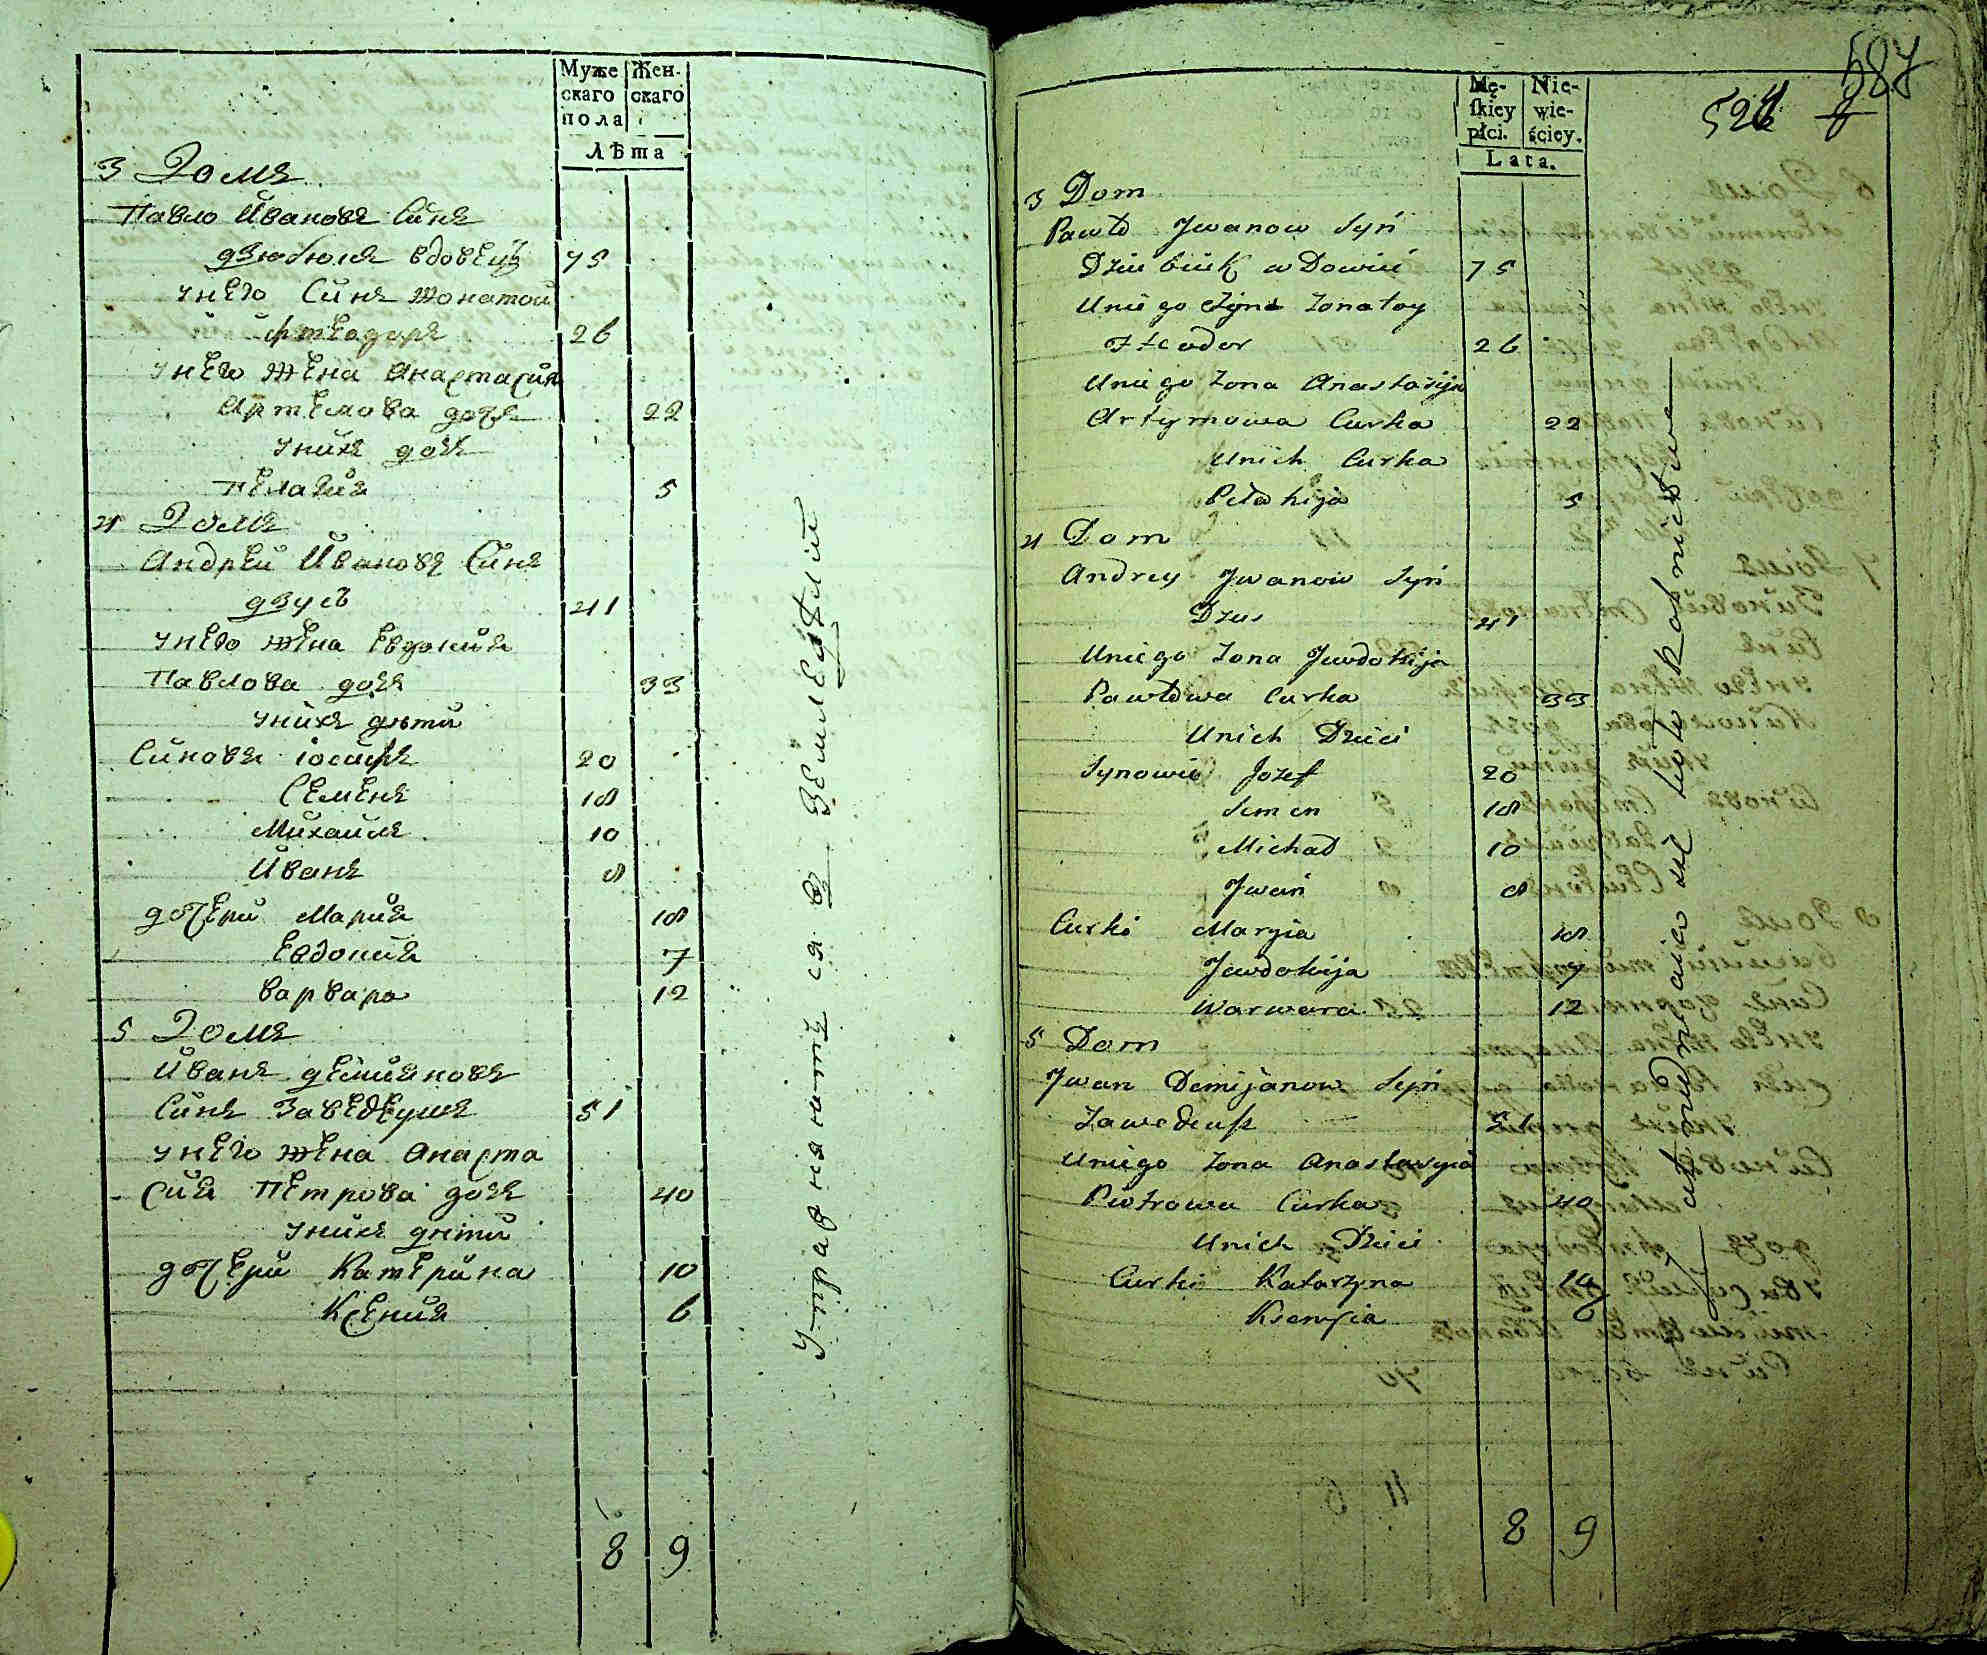 Муже
скаго
пола
Жен-
скаго
Лѣта
3 Домъ
Павло Ивановъ Синъ
дзюбюкъ вдовецъ 75
унего Синъ жонатои
фтеодоръ 26
унего жена Анастасия
Артемова дочъ 22
унихъ дочъ
Пелагия 5
4 Домъ
Андрей Ивановъ Синъ
дзусь 41
унего жена Евдокия
Павлова дочъ 33
унихъ дѣти
Синовя іосифъ 20
Семенъ 18
Михаилъ 10
Иванъ 8
дочери Мария 18
Евдокия 7
Варвара 12
5 Домъ
Иванъ демияновъ
Синъ Заведеушъ 51
унего жена Анаста
сия Петрова дочъ 40
унихъ дѣти
дочери Катерина 10
Ксения 6
8 9
Упражняютъ ся в земледѣлии
587
526
8
Mę-
ſkiey
płci.
Nie-
wie-
ściey.
Lata.
3 Dom
Pawło Jwanow Syń
Dziubiuk wDowiec 75
Uniego Syns Zonatoy
Fteodor 26
Uniego Zona Anastasija
Artymowa Curka 22
Unich Curka
Pełahija 5
4 Dom
Andrey Jwanow Syń
Dzus 41
Uniego Zona Jewdokija
Pawłowa Curka 33
Unich Dzieci
Synowie Jozef 20
Semen 18
Michał 10
Jwań 8
Curki Maryia 18
Jewdokija 7
Warwara 12
5 Dom
Jwan Demijanow Syń
Zawedeuſz 51
Uniego Zona Anastasyia
Piotrowa Curka 40
Unich Dzieci
Curki Katarzyna 10
Ksenyia 6
8 9